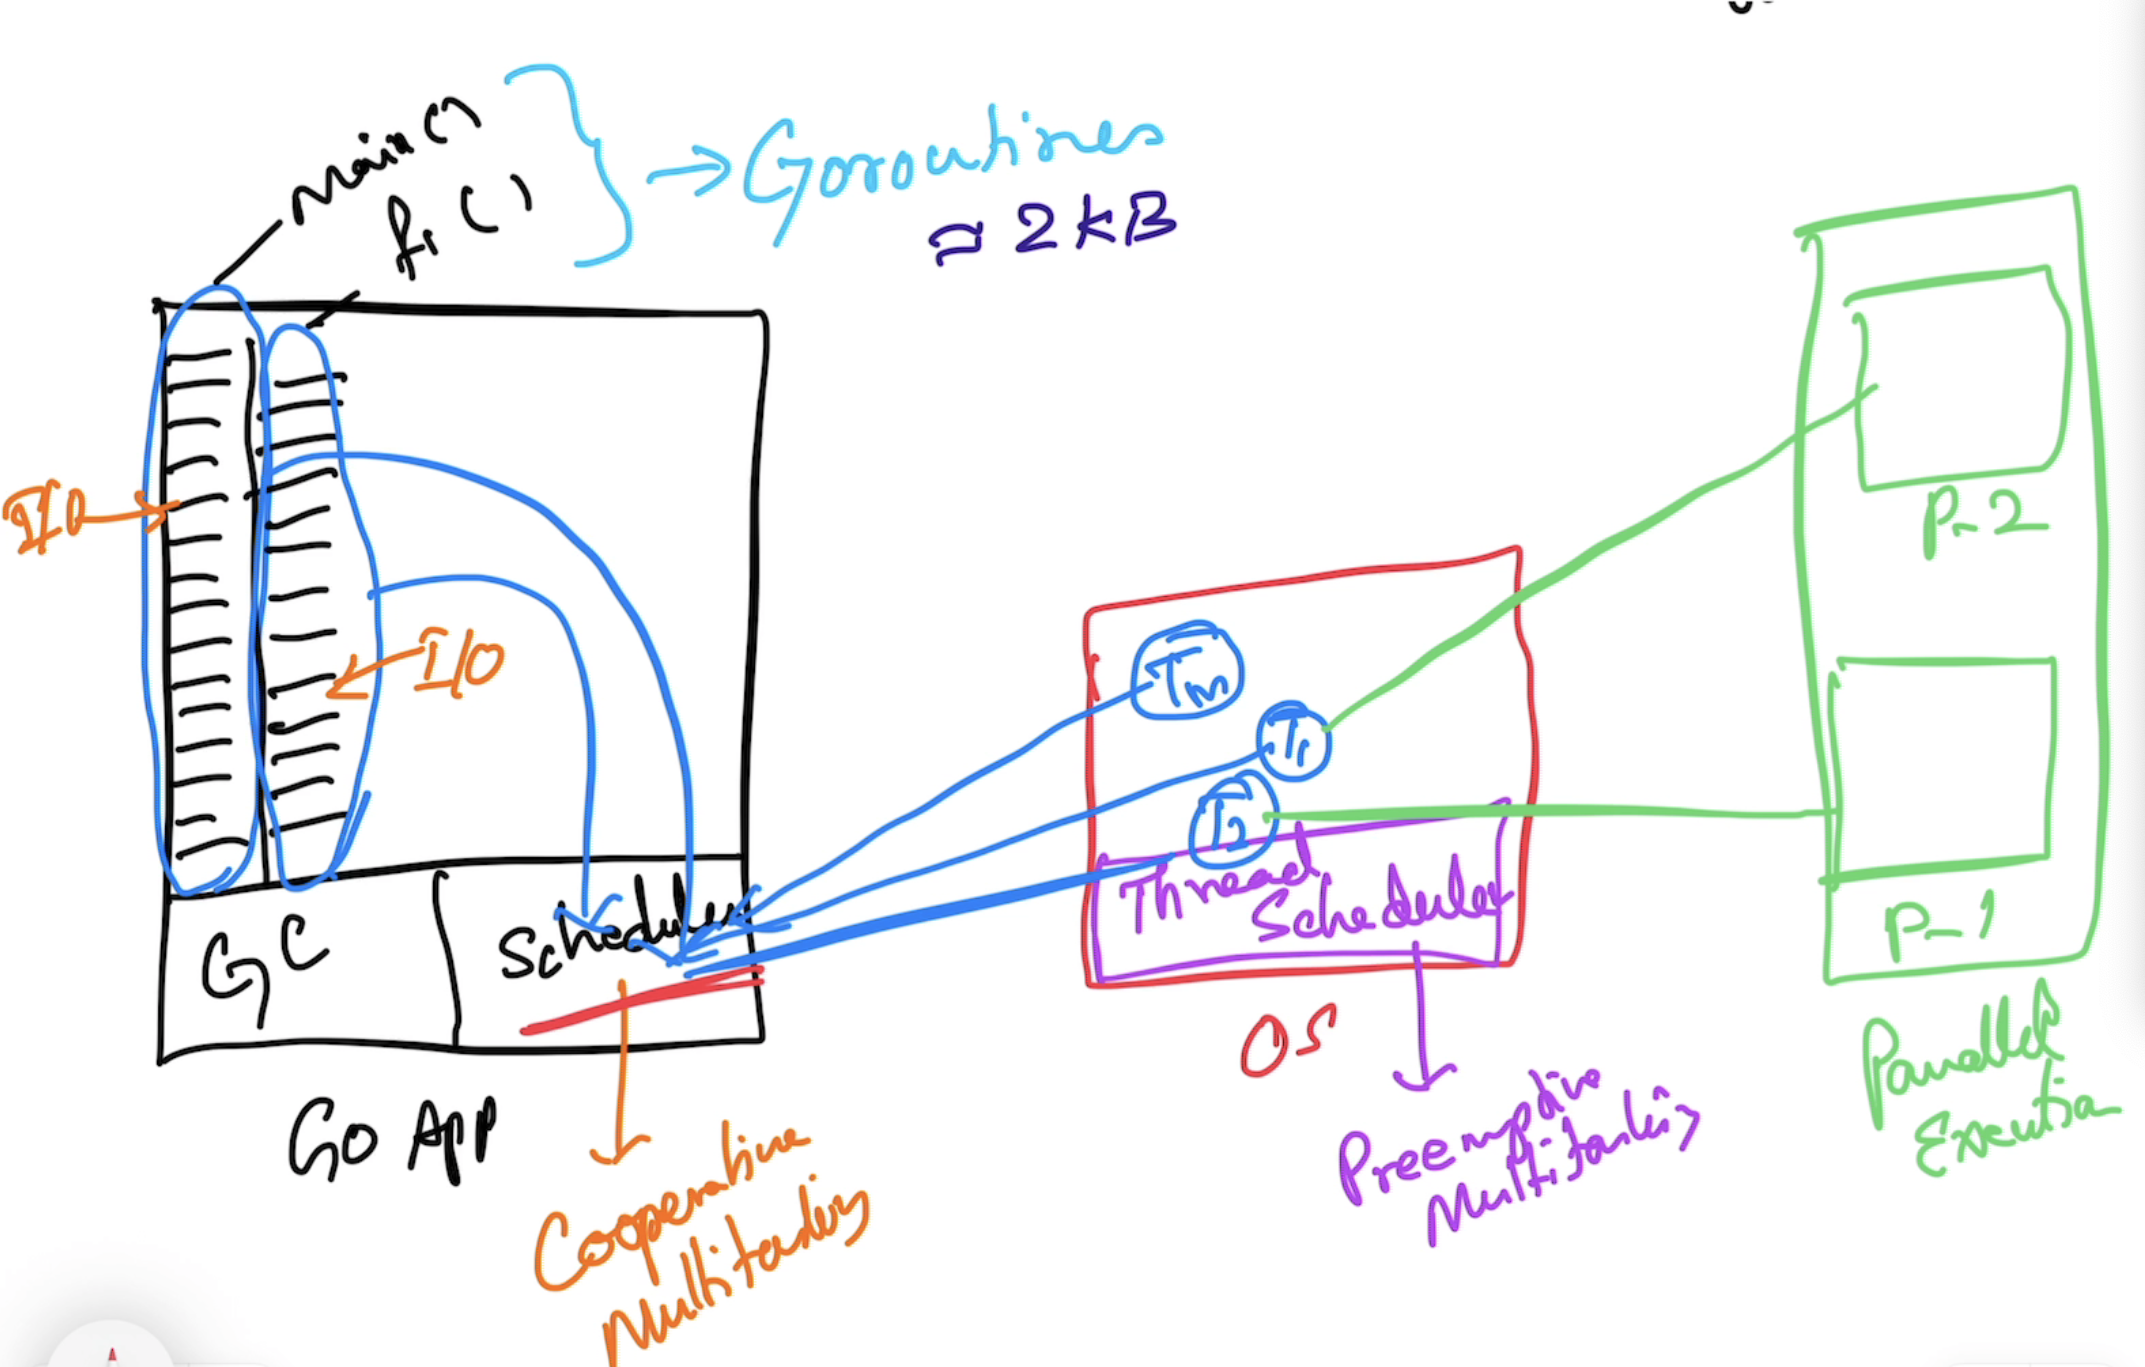 Main()
f1()
→ Goroutines
≈ 2 KB
I/O
I/O
GC
Scheduler
Go App
Cooperative
Multitasking
Tm
T1
T2
Thread
Scheduler
OS
Preemptive
Multitasking
P-2
P-1
Parallel
Execution